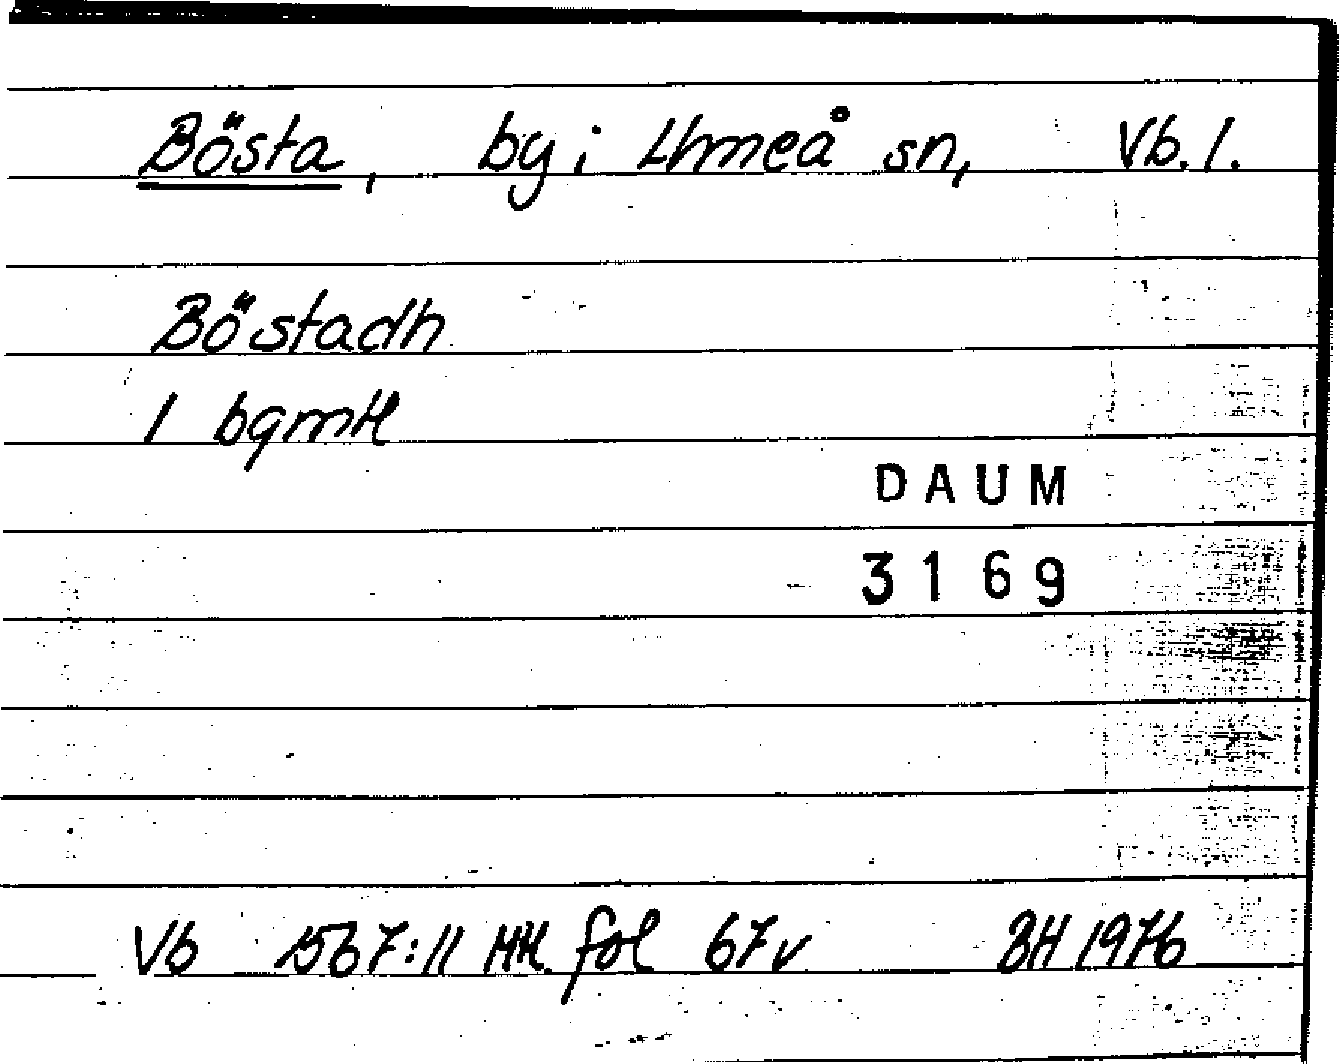 Bösta, by i Umeå sn, Vb. l.
Böstadh
1 bgmtl
DAUM
3169
Vb 1567:11 HH. fol 67v BH 1976